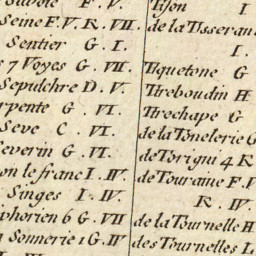 Savoie F. V.
Seine F. V. R. VII.
Sentier G. I.
s 7 Voyes G. VII.
Sepulchre D. V.
rpente G. VI.
Seve C. VI.
Severin G. VI.
on le franc I. IV.
Singes I. IV.
phorien 6 G. VII
Sonnerie 1 G. IV
Tison I
de la Tisseran
I.
Tiquetone G
Tireboudin H
Tirechape G
de la Tonelerie G
de Torigni 4 K
de Touraine F. V
R. IV.
de la Tournelle H
des Tournelles L